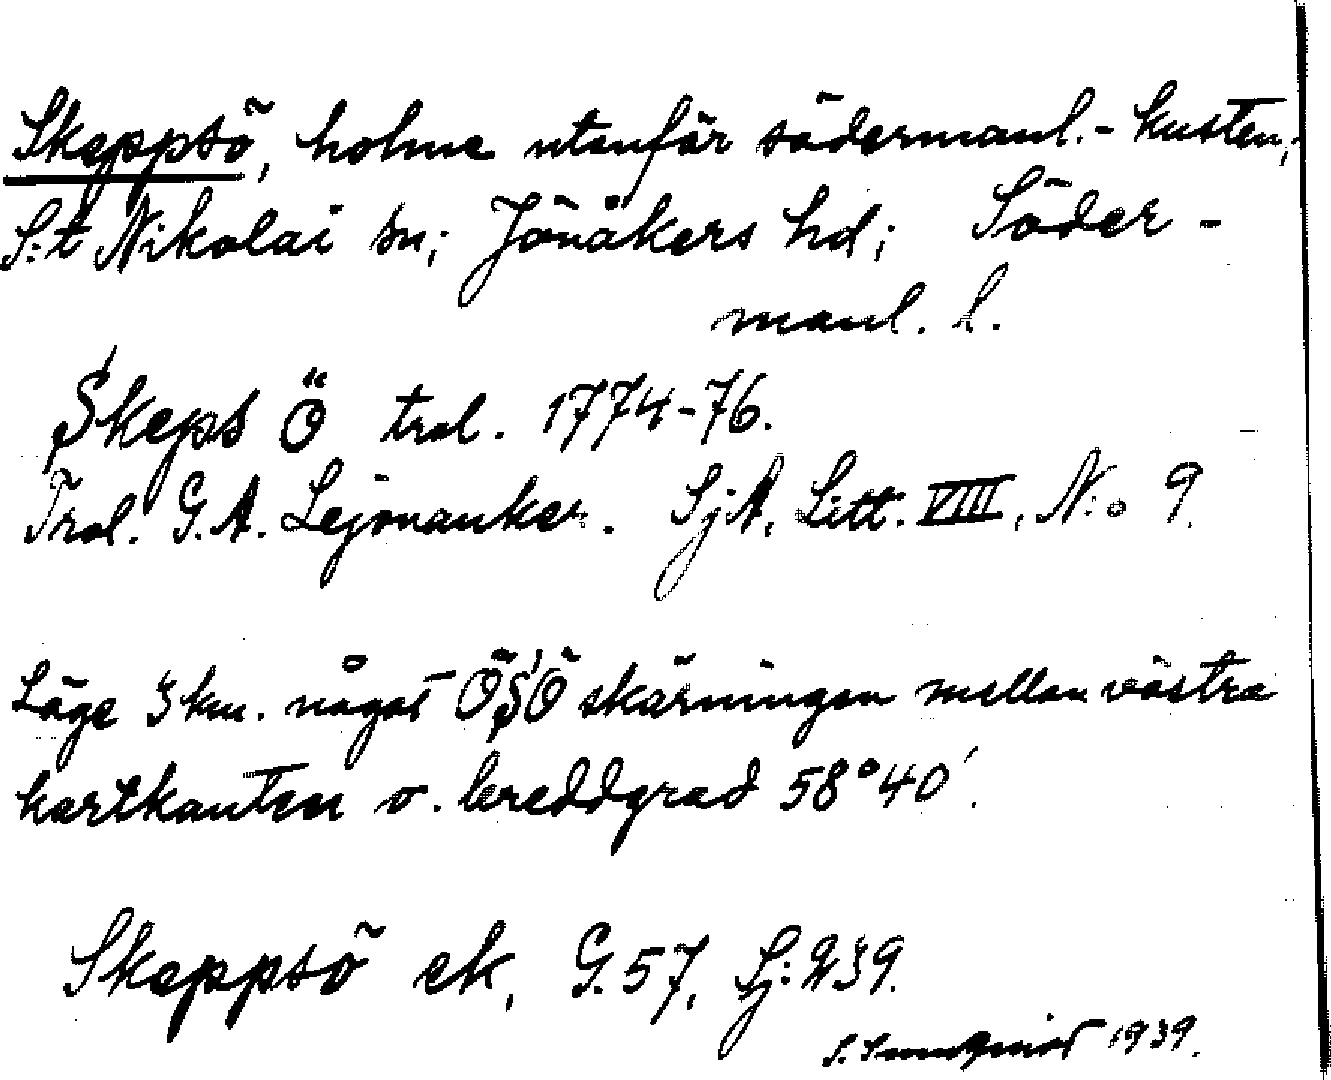 Skeppsö, holme utanför södermanl.-kusten,
S:t Nikolai sn; Jönåkers hd; Söder-
manl. l.
Skeps Ö trol. 1774-76.
Trol. G. A. Lejonanker. SjA, Litt. VIII, N:o 9.
Läge 3 km. något ÖSÖ skärningen mellan västra
kartkanten o. breddgrad 58°40'.
Skeppsö ek, G. 57, Sj: 239.
S. 1939.